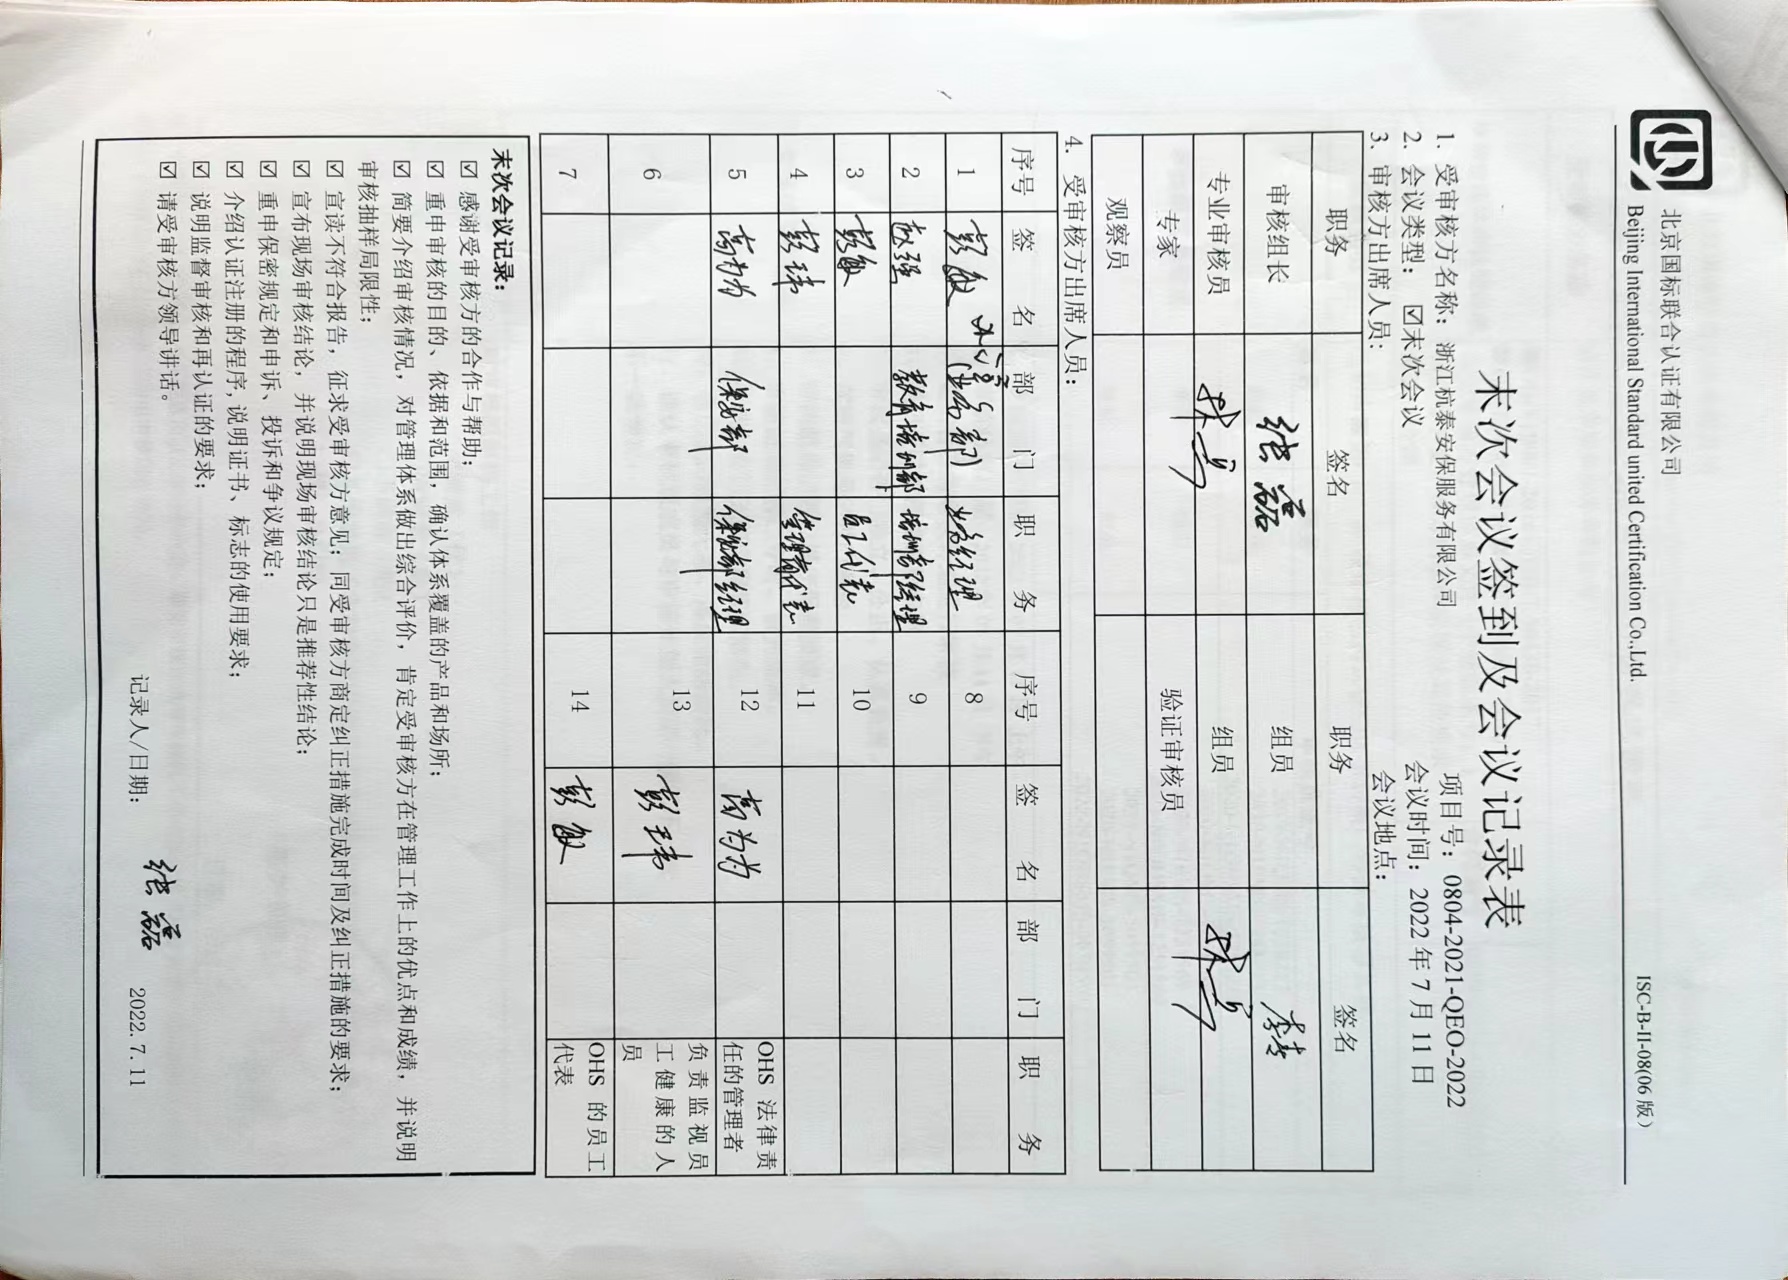 北京国标联合认证有限公司
Beijing International Standard united Certification Co.,Ltd.
ISC-B-II-08(06 版)
末次会议签到及会议记录表
1. 受审核方名称：浙江杭泰安保服务有限公司 项目号：0804-2021-QEO-2022
2. 会议类型： ☑末次会议 会议时间：2022 年 7 月 11 日
3. 审核方出席人员： 会议地点：
职务 签名 职务 签名
审核组长 张磊 组员
专业审核员 组员
专家 验证审核员
观察员
4. 受审核方出席人员：
序号 签 名 部 门 职 务 序号 签 名 部 门 职 务
1 彭敏 办公室(业务部) 业务经理 8
2 赵强 教育培训部 培训部经理 9
3 彭敏 员工代表 10
4 彭玮 管理者代表 11
5 高为为 保安部 保安部经理 12 高为为 OHS 法律责任的管理者
6 13 彭玮 负责监视员工健康的人员
7 14 彭敏 OHS 的员工代表
末次会议记录：
☑ 感谢受审核方的合作与帮助；
☑ 重申审核的目的、依据和范围，确认体系覆盖的产品和场所；
☑ 简要介绍审核情况，对管理体系做出综合评价，肯定受审核方在管理工作上的优点和成绩，并说明
审核抽样局限性；
☑ 宣读不符合报告，征求受审核方意见；同受审核方商定纠正措施完成时间及纠正措施的要求；
☑ 宣布现场审核结论，并说明现场审核结论只是推荐性结论；
☑ 重申保密规定和申诉、投诉和争议规定；
☑ 介绍认证注册的程序，说明证书、标志的使用要求；
☑ 说明监督审核和再认证的要求；
☑ 请受审核方领导讲话。
记录人/日期： 张磊 2022.7.11